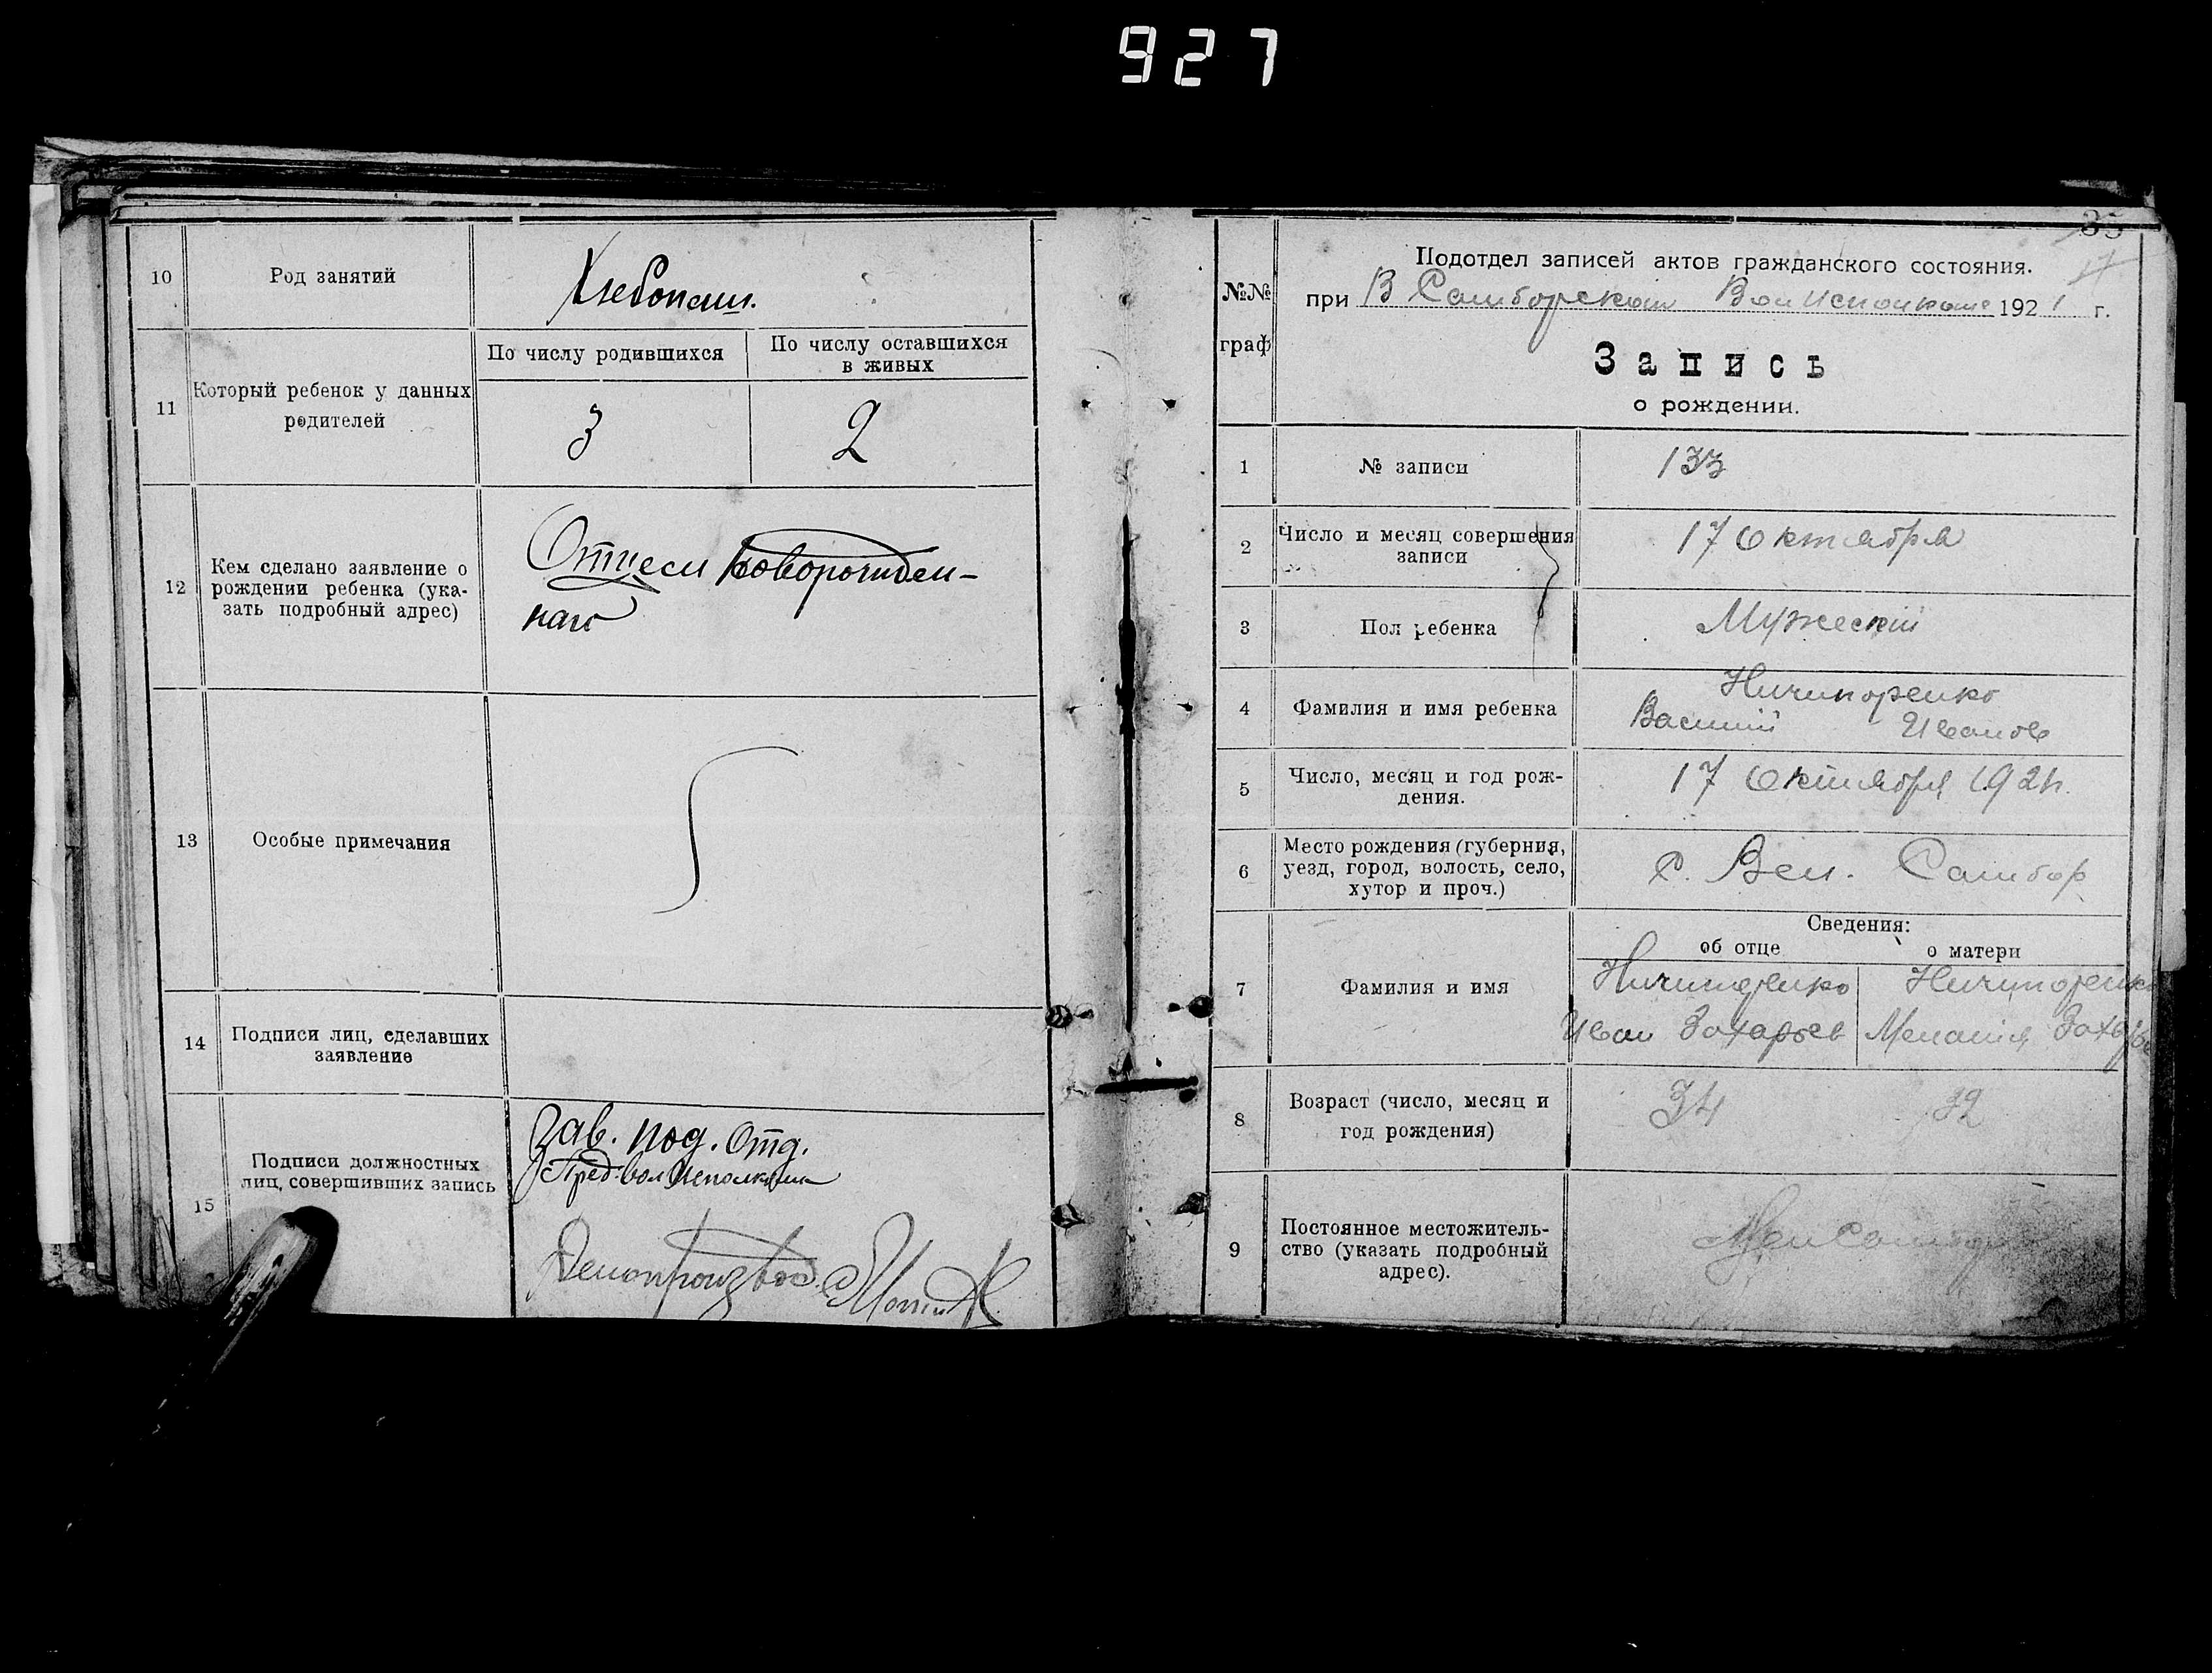 927
10
Род занятий
Хлебопаш.
11
Который ребенок у данных
родителей
По числу родившихся
По числу оставшихся
в живых
3
2
12
Кем сделано заявление о
рождении ребенка (ука-
зать подробный адрес)
Отцем новорожден-
наго
13
Особые примечания
14
Подписи лиц, сделавших
заявление
15
Подписи должностных
лиц, совершивших запись
Зав. под. Отд.
Пред. волисполкома
Делопроизвод.
35
17
№№
граф
Подотдел записей актов гражданского состояния.
при В Самборском Волисполкоме 1921 г.
Запись
о рождении.
1
№ записи
133
2
Число и месяц совершения
записи
17 Октября
3
Пол ребенка
Мужеский
4
Фамилия и имя ребенка
Ничипоренко
Василий Иванов
5
Число, месяц и год рож-
дения.
17 Октября 1921г.
6
Место рождения (губерния,
уезд, город, волость, село,
хутор и проч.)
с. Вел. Самбор
Сведения:
об отце
о матери
7
Фамилия и имя
Ничипоренко
Иван Захарьев
Ничипоренко
Мелания
8
Возраст (число, месяц и
год рождения)
34
32
9
Постоянное местожитель-
ство (указать подробный
адрес).
Вел Самбор